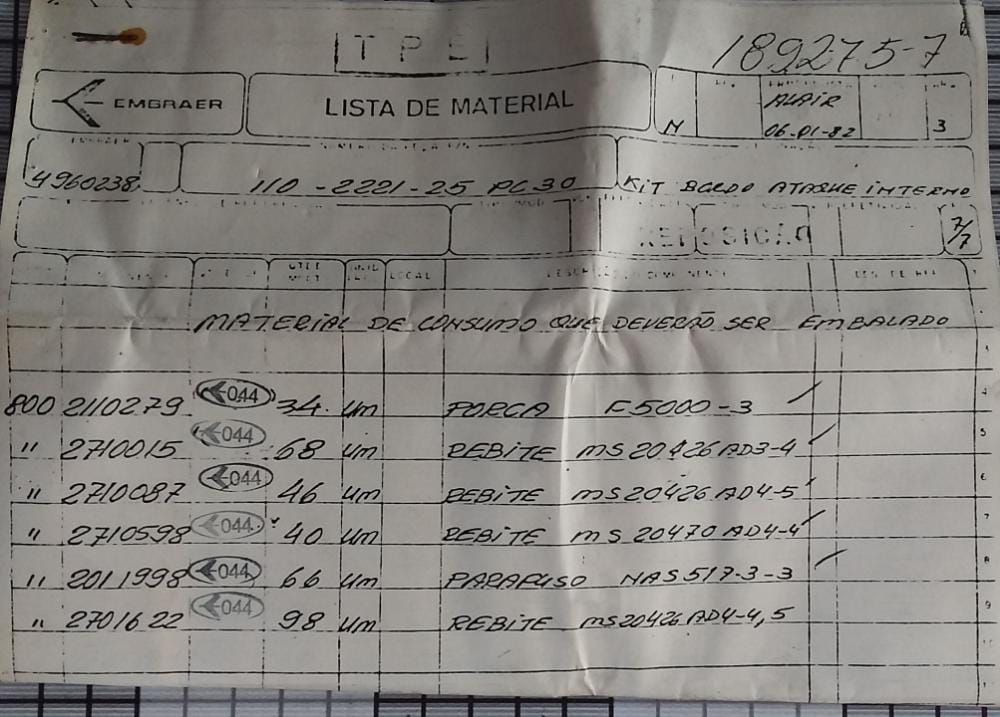 TPEI 189275-7
EMBRAER LISTA DE MATERIAL N ALAIR 06-01-82 3
4960238 110-2221-25 PC.30 KIT BORDO ATAQUE INTERNO
REPOSIÇÃO 7/7
LOCAL
MATERIAL DE CONSUMO QUE DEVERÃO SER EMBALADO
800 2110279 044 34. um PORCA F5000-3
" 2710015 044 68 um REBITE MS20426AD3-4
" 2710087 044 46 um REBITE MS20426AD4-5
" 2710598 044 40 um REBITE MS 20470 AD4-4
" 2011998 044 66 um PARAFUSO NAS517-3-3
" 2701622 044 98 um REBITE MS20426AD4-4,5